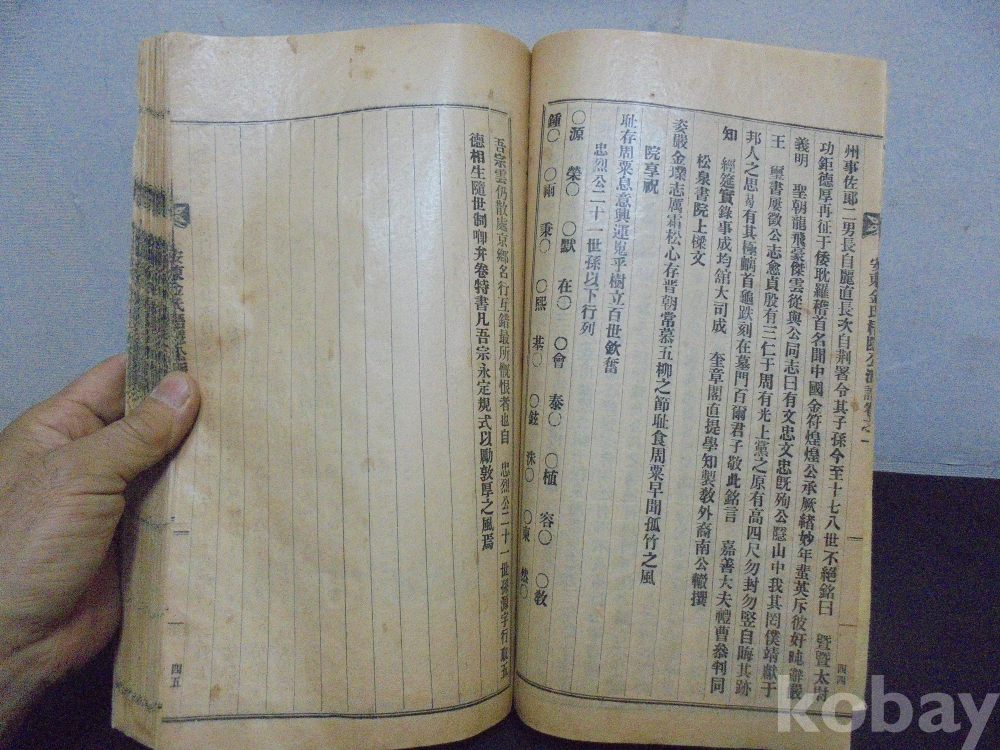 州事佐郎二男長自麗直長次自荆署令其子孫今至十七八世不絕銘曰 曁曁太尉
功鉅德厚再征于倭耽羅稽首名聞中國金符煌煌公承厥緖妙年蜚英斥彼奸
義明 聖朝龍飛豪傑雲從與公同志曰有文忠文忠旣殉公隱山中我其罔僕靖獻于
王 璽書屢徵公志愈貞殷有三仁于周有光上黨之原有高四尺勿封勿竪自晦其跡
邦人之思曷有其極螭首龜趺刻在墓門百爾君子敬此銘言 嘉善大夫禮曹叅判同
知 經筵實錄事成均舘大司成 奎章閣直提學知製敎外裔南公轍撰
松泉書院上樑文
姿嚴金璞志厲霜松心存晋朝常慕五柳之節耻食周粟早聞孤竹之風
院享祝
耻存周粟息意興運嵬乎樹立百世欽奮
忠烈公二十一世孫以下行列
○源 榮○ ○默 在○ ○會 泰○ ○植 容○ ○敎
鍾○ ○雨 秉○ ○熙 基○ ○鉉 洙○ ○東 ○
吾宗雲仍散處京鄉名行互錯最所慨恨者也自 忠烈公二十一世孫源字行取五
德相生隨世制卿弁卷特書凡吾宗永定規式以勵敦厚之風焉
安東金氏
卷之一
四四
四五
kobay